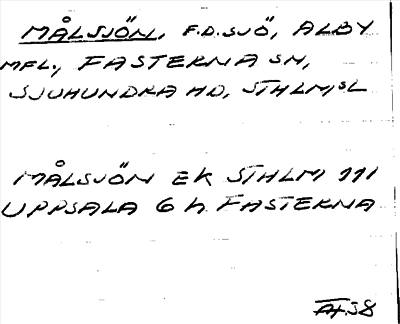 MÅLSJÖN, F.D. SJÖ, ALBY
MFL., FASTERNA SN,
SJUHUNDRA HD, STHLMS L
MÅLSJÖN EK STHLM 111
UPPSALA 6 h FASTERNA